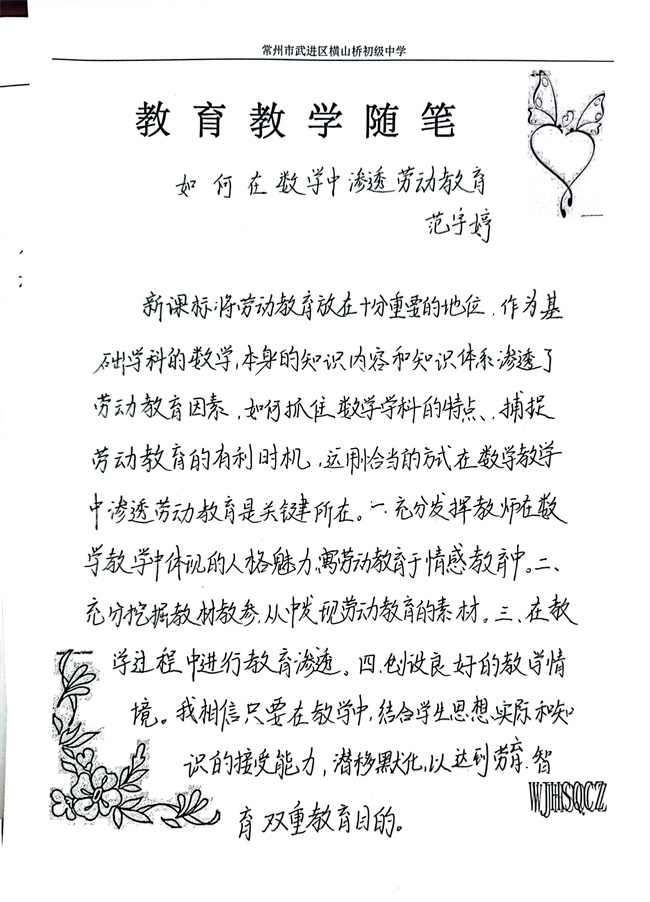 常州市武进区横山桥初级中学
教育教学随笔
如何在数学中渗透劳动教育
范宇婷
新课标将劳动教育放在十分重要的地位，作为基
础学科的数学，本身的知识内容和知识体系渗透了
劳动教育因素，如何抓住数学学科的特点、捕捉
劳动教育的有利时机，运用恰当的方式在数学教学
中渗透劳动教育是关键所在。一、充分发挥教师在数
学教学中体现的人格魅力，寓劳动教育于情感教育中。二、
充分挖掘教材教参，从中发现劳动教育的素材。三、在教
学过程中进行教育渗透。四、创设良好的教学情
境。我相信只要在教学中，结合学生思想实际和知
识的接受能力，潜移默化，以达到劳育、智
育双重教育目的。
WJHSQCZ